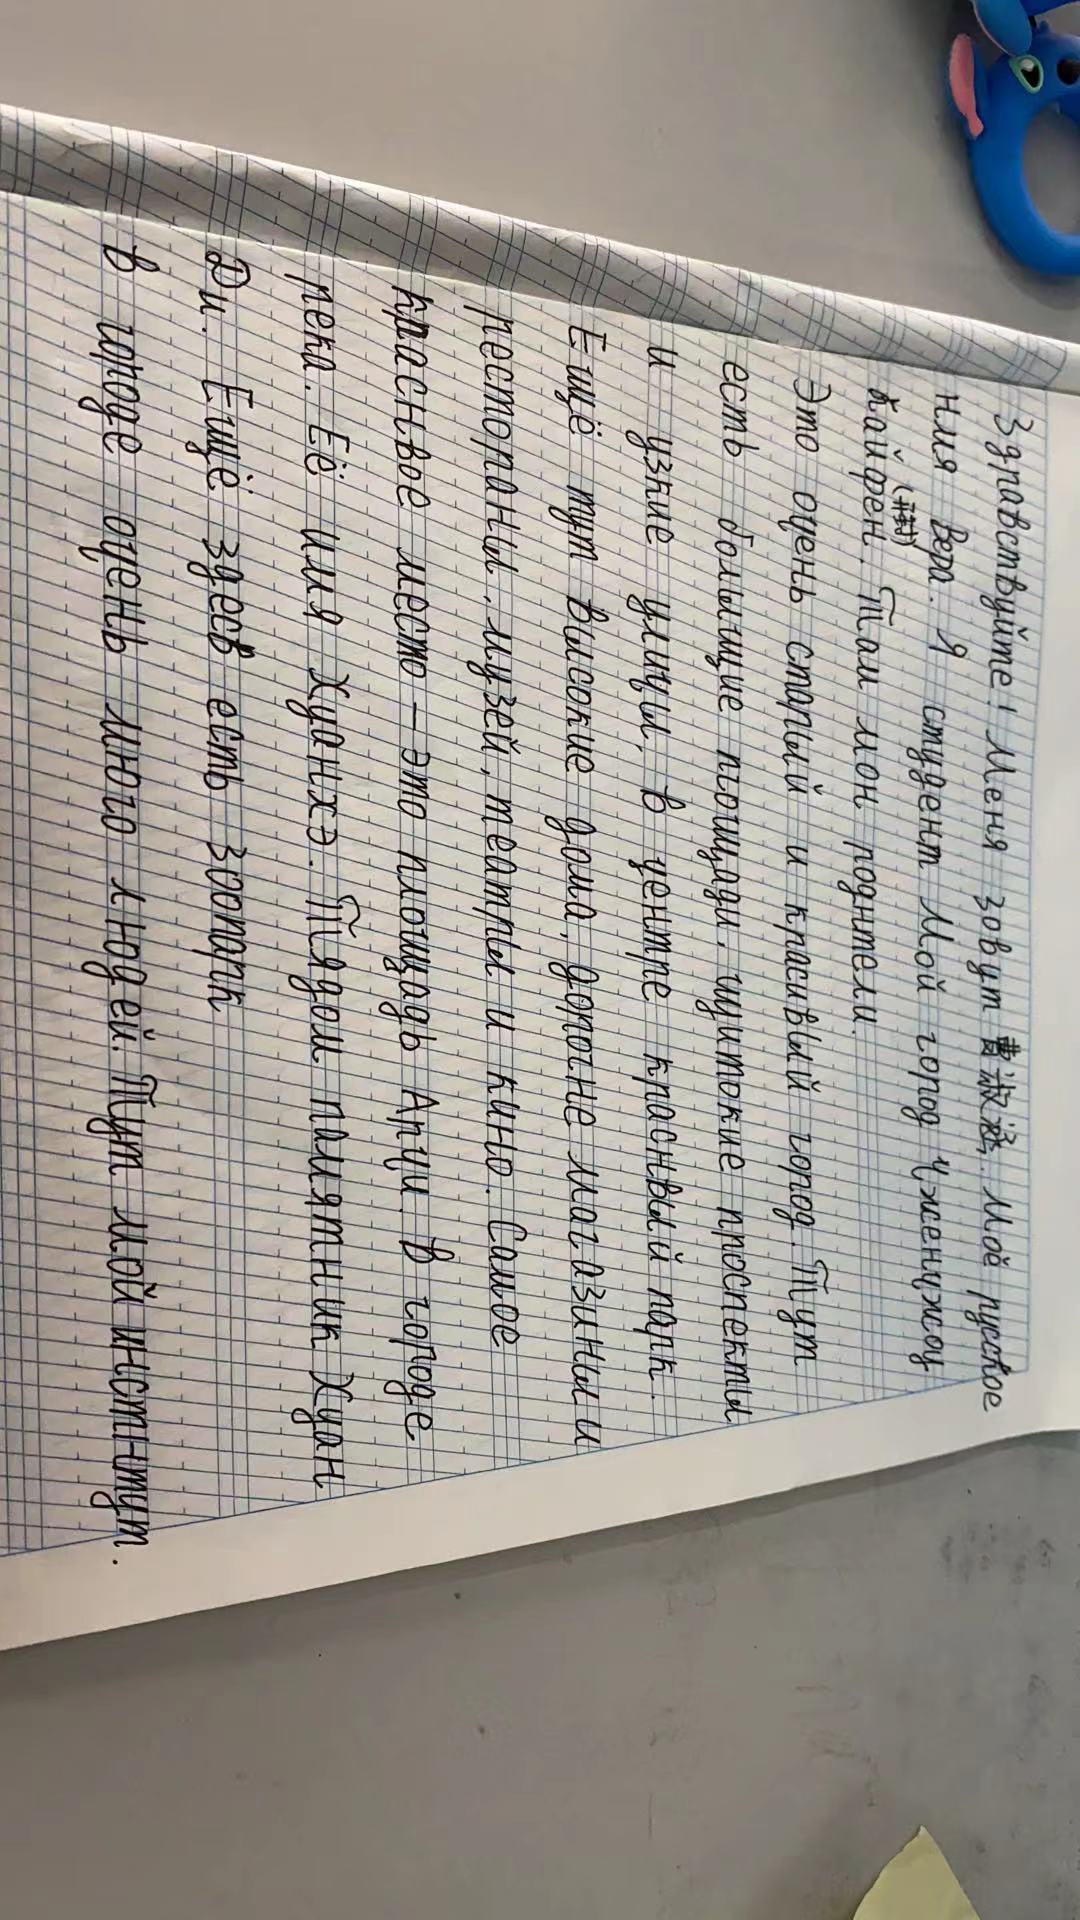 Здравствуйте! Меня зовут 曹淑涵. Моё русское
имя Вера. Я студент Мой город Чженчжоу
(开封)
Кайфен. Там мои родители.
Это очень старый и красивый город. Тут
есть большие площади, щитокие проспекты
и узкие улицы, в центре краснвый парк.
Ещё тут високие дома, дорогие магазины и
рестораны, музей, театры и кино. Самое
красньвое место – это площадь Арци. В городе
река. Её имя Хуанхэ. Рядом памятник Хуан
Ди. Ещё здесв есть зопарк
В городе очень много людей. Тут мой институт.